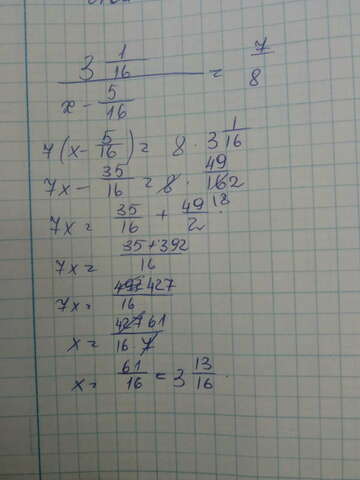 3 1/16 / (x - 5/16) = 7/8
7(x - 5/16) = 8 · 3 1/16
7x - 35/16 = 8 · 49/162
7x = 35/16 + 49/2 18
7x = 35+392/16
7x = 427/16
x = 427 61/16·7
x = 61/16 = 3 13/16.